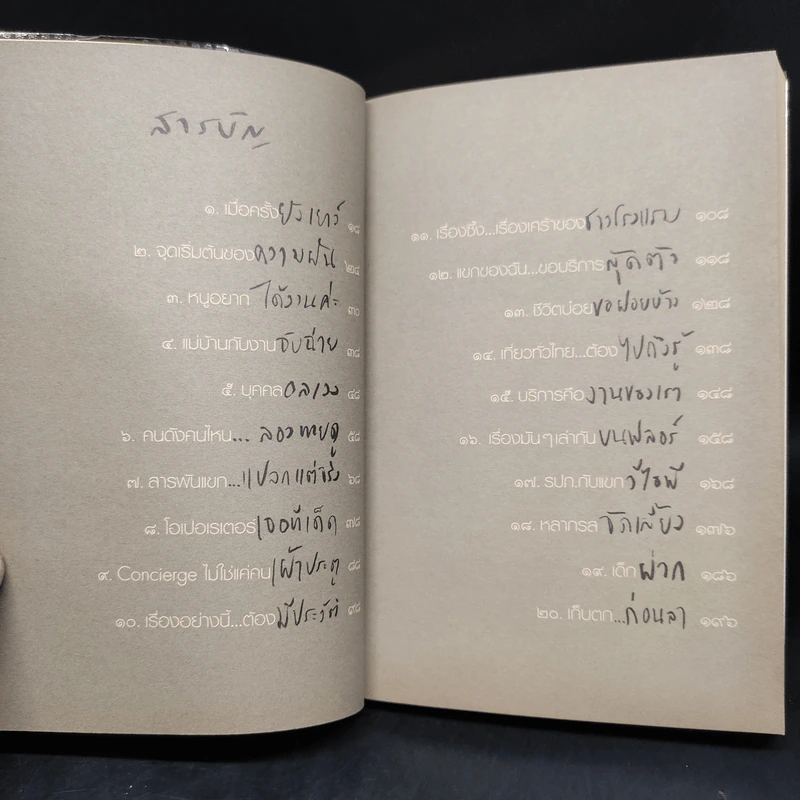 สารบัญ
๑. เมื่อครั้งยังเยาว์ ๑๘
๒. จุดเริ่มต้นของความฝัน ๒๔
๓. หนูอยาก ได้งานค่ะ ๓๐
๔. แม่บ้านกับงานจับฉ่าย ๓๘
๕. บุคคลอลเวง ๔๘
๖. คนดังคนไหน... ลองทายดู ๕๘
๗. สารพันแขก...แปลกแต่จริง ๖๘
๘. โอเปอเรเตอร์เจอทีเด็ด ๗๘
๙. Concierge ไม่ใช่แค่คนเฝ้าประตู ๘๘
๑๐. เรื่องอย่างนี้...ต้องมีประวัติ ๙๘
๑๑. เรื่องซึ้ง...เรื่องเศร้าของชาวโรงแรม ๑๐๘
๑๒. แขกของฉัน...ขอบริการสุดตัว ๑๑๘
๑๓. ชีวิตบ๋อยขอฝอยบ้าง ๑๒๘
๑๔. เที่ยวทั่วไทย...ต้องไปถึงรู้ ๑๓๘
๑๕. บริการคืองานของเรา ๑๔๘
๑๖. เรื่องมันๆ เล่ากันบนฟลอร์ ๑๕๘
๑๗. รปภ.กับแขกวีไอพี ๑๖๘
๑๘. หลากรส จัดเลี้ยง ๑๗๖
๑๙. เด็กฝาก ๑๘๖
๒๐. เก็บตก...ก่อนลา ๑๙๖